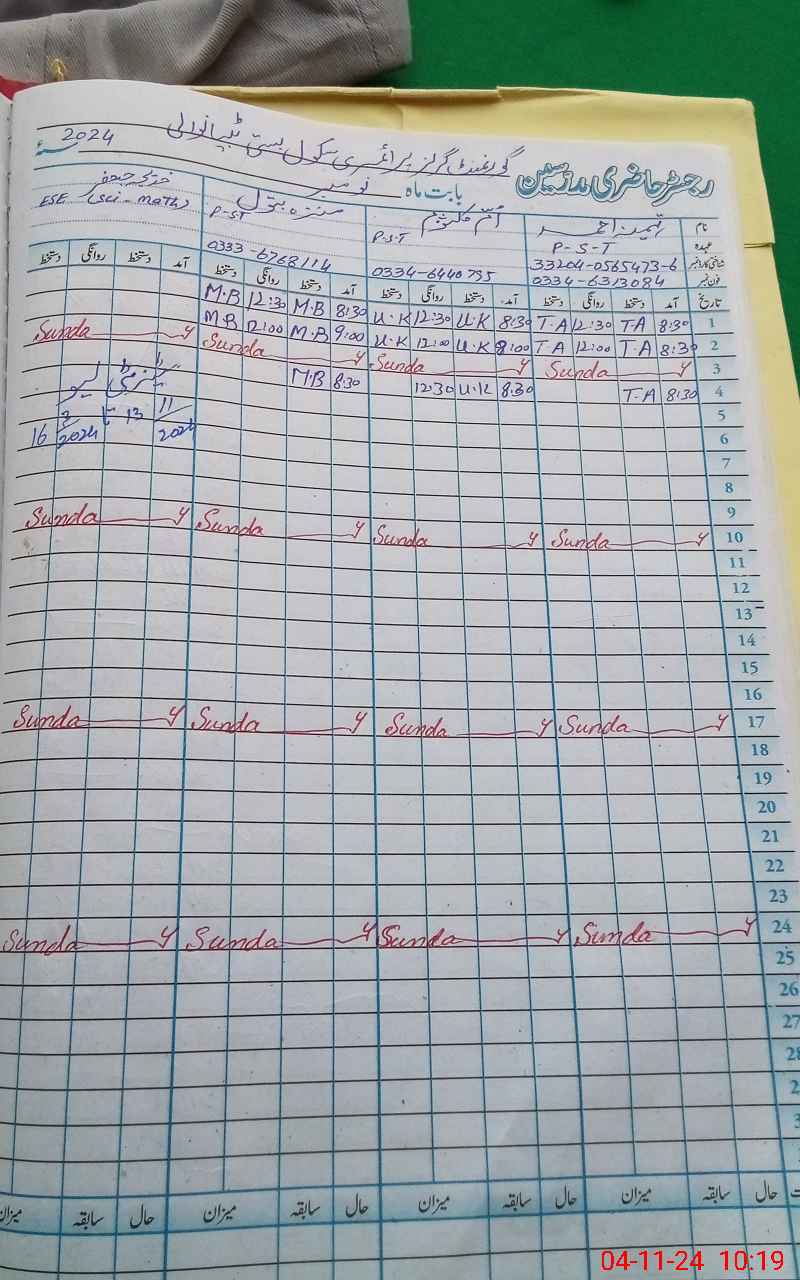 گورنمنٹ گرلز پرائمری سکول بستی ٹلیانوالی
رجسٹر حاضری مدرسین بابت ماہ نومبر سنہ 2024
نام تہمینہ احمد ام کلثوم منزہ بتول خدیجہ جعفر
عہدہ P-S-T P-S-T P-ST ESE (Sci-math)
شناختی کارڈ نمبر 33204-0565473-6
فون نمبر 0334-6313084 0334-6440735 0333-6768114
تاریخ آمد دستخط روانگی دستخط آمد دستخط روانگی دستخط آمد دستخط روانگی دستخط آمد دستخط روانگی دستخط
1 8:30 T-A 12:30 T-A 8:30 U-K 12:30 U-K 8:30 M-B 12:30 M-B
2 8:30 T-A 12:00 T-A 8:00 U-K 12:00 U-K 9:00 M-B 12:00 M-B
3 Sunday Sunday Sunday Sunday
4 8:30 T-A 8:30 U-K 12:30 8:30 M-B
5
6
7
8
9
10 Sunday Sunday Sunday Sunday
11
12
13
14
15
16
17 Sunday Sunday Sunday Sunday
18
19
20
21
22
23
24 Sunday Sunday Sunday Sunday
25
26
27
28
لیو
13 11/2024 تا
16 2/2024
حال سابقہ میزان حال سابقہ میزان حال سابقہ میزان حال سابقہ میزان
04-11-24 10:19